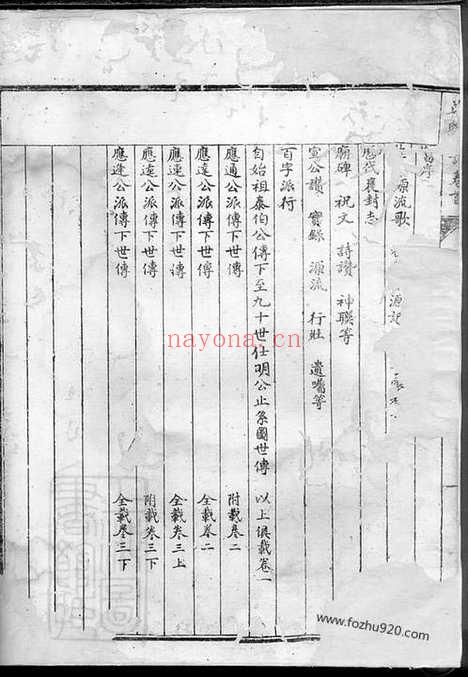 源流歌
源記
歷代褒封志
廟碑 祝文 詩讚 神聯等
宣公讚 實錄 源流 行狀 遺囑等
百字派行
自始祖泰伯公傳下至九十世仕明公止系圖世傳 以上俱載卷一
應通公派傳下世傳 附載卷二
應達公派傳下世傳 全載卷二
應速公派傳下世傳 全載卷三上
應遠公派傳下世傳 附載卷三下
應逢公派傳下世傳 全載卷三下
nayona.cn
www.fozhu920.com